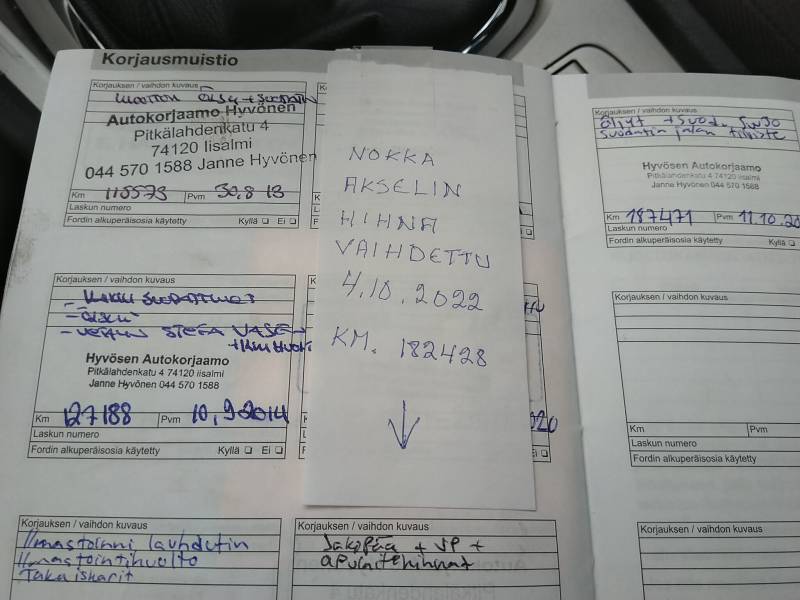 Korjausmuistio
Korjauksen / vaihdon kuvaus
Autokorjaamo Hyvönen
Pitkälahdenkatu 4
74120 Iisalmi
044 570 1588 Janne Hyvönen
Km 115573 Pvm 30.8 13
Laskun numero
Fordin alkuperäisosia käytetty Kyllä Ei
Korjauksen / vaihdon kuvaus
- öljy
Hyvösen Autokorjaamo
Pitkälahdenkatu 4 74120 Iisalmi
Janne Hyvönen 044 570 1588
Km 127188 Pvm 10.9 2014
Laskun numero
Fordin alkuperäisosia käytetty Kyllä Ei
Korjauksen / vaihdon kuvaus
Ilmastoinni lauhdutin
Ilmastointihuolto
Takaiskarit
NOKKA
AKSELIN
HIHNA
VAIHDETTU
4.10.2022
KM. 182428
Korjauksen / vaihdon kuvaus
Jakopää + VP +
apulaitehihnat
Korjauksen / vaihdon kuvaus
Öljyt + suod. 5w30
suodatin jalan tiiviste
Hyvösen Autokorjaamo
Pitkälahdenkatu 4 74120 Iisalmi
Janne Hyvönen 044 570 1588
Km 187471 Pvm 11.10.20
Laskun numero
Fordin alkuperäisosia käytetty Kyllä
Korjauksen / vaihdon kuvaus
Km Pvm
Laskun numero
Fordin alkuperäisosia käytetty
Korjauksen / vaihdon kuvaus